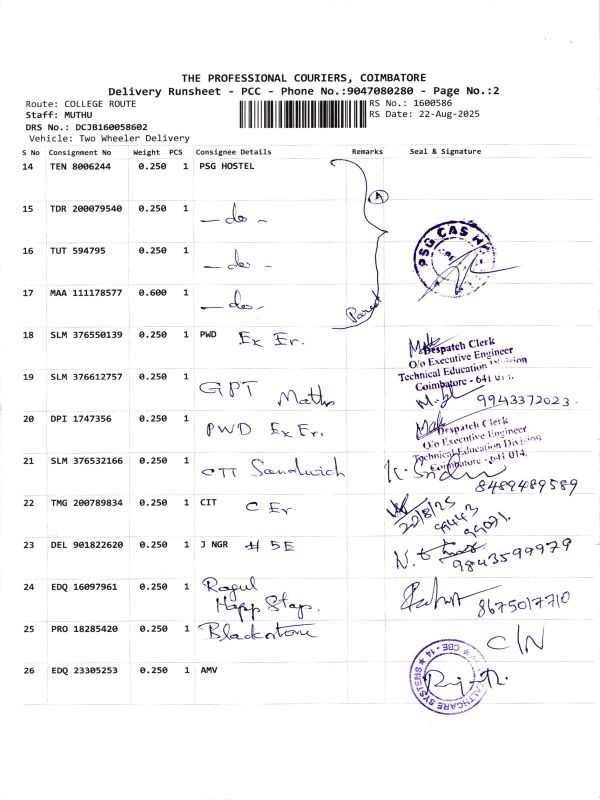 THE PROFESSIONAL COURIERS, COIMBATORE
Delivery Runsheet - PCC - Phone No.:9047080280 - Page No.:2
Route: COLLEGE ROUTE
RS No.: 1600586
Staff: MUTHU
RS Date: 22-Aug-2025
DRS No.: DCJB160058602
Vehicle: Two Wheeler Delivery
S No Consignment No Weight PCS Consignee Details Remarks Seal & Signature
14 TEN 8006244 0.250 1 PSG HOSTEL
A
15 TDR 200079540 0.250 1 -do-
PSG CAS
16 TUT 594795 0.250 1 -do-
17 MAA 111178577 0.600 1 -do-
Parcel
18 SLM 376550139 0.250 1 PWD Ex Er.
Despatch Clerk
O/o Executive Engineer
Technical Education Division
Coimbatore - 641 014.
19 SLM 376612757 0.250 1 GPT Maths
9943372023.
20 DPI 1747356 0.250 1 PWD Ex Er.
Despatch Clerk
O/o Executive Engineer
Technical Education Division
Coimbatore - 641 014.
21 SLM 376532166 0.250 1 Sandwich
8489489589
22 TMG 200789834 0.250 1 CIT C Er
22/8/25
94443
99091.
23 DEL 901822620 0.250 1 J NGR # 5E
9843599979
24 EDQ 16097961 0.250 1 Ragul
Happ Stays.
8675017710
25 PRO 18285420 0.250 1 Blackstone
C/N
26 EDQ 23305253 0.250 1 AMV
HEALTHCARE SYSTEMS ★ CBE - 14 ★